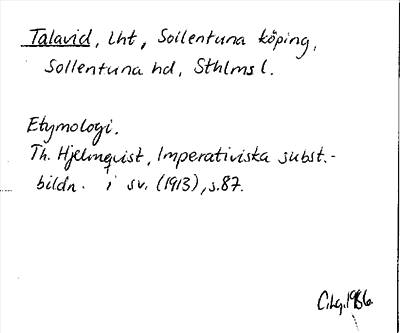 Talavid, lht, Sollentuna köping,
Sollentuna hd, Sthlms l.
Etymologi.
Th. Hjelmqvist, Imperativiska subst.-
bildn. i sv. (1913), s. 87.
C.Lg. 1986